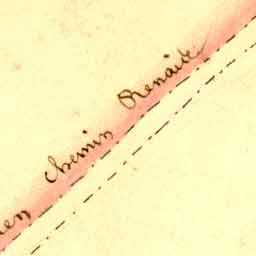 en chemin Renaix